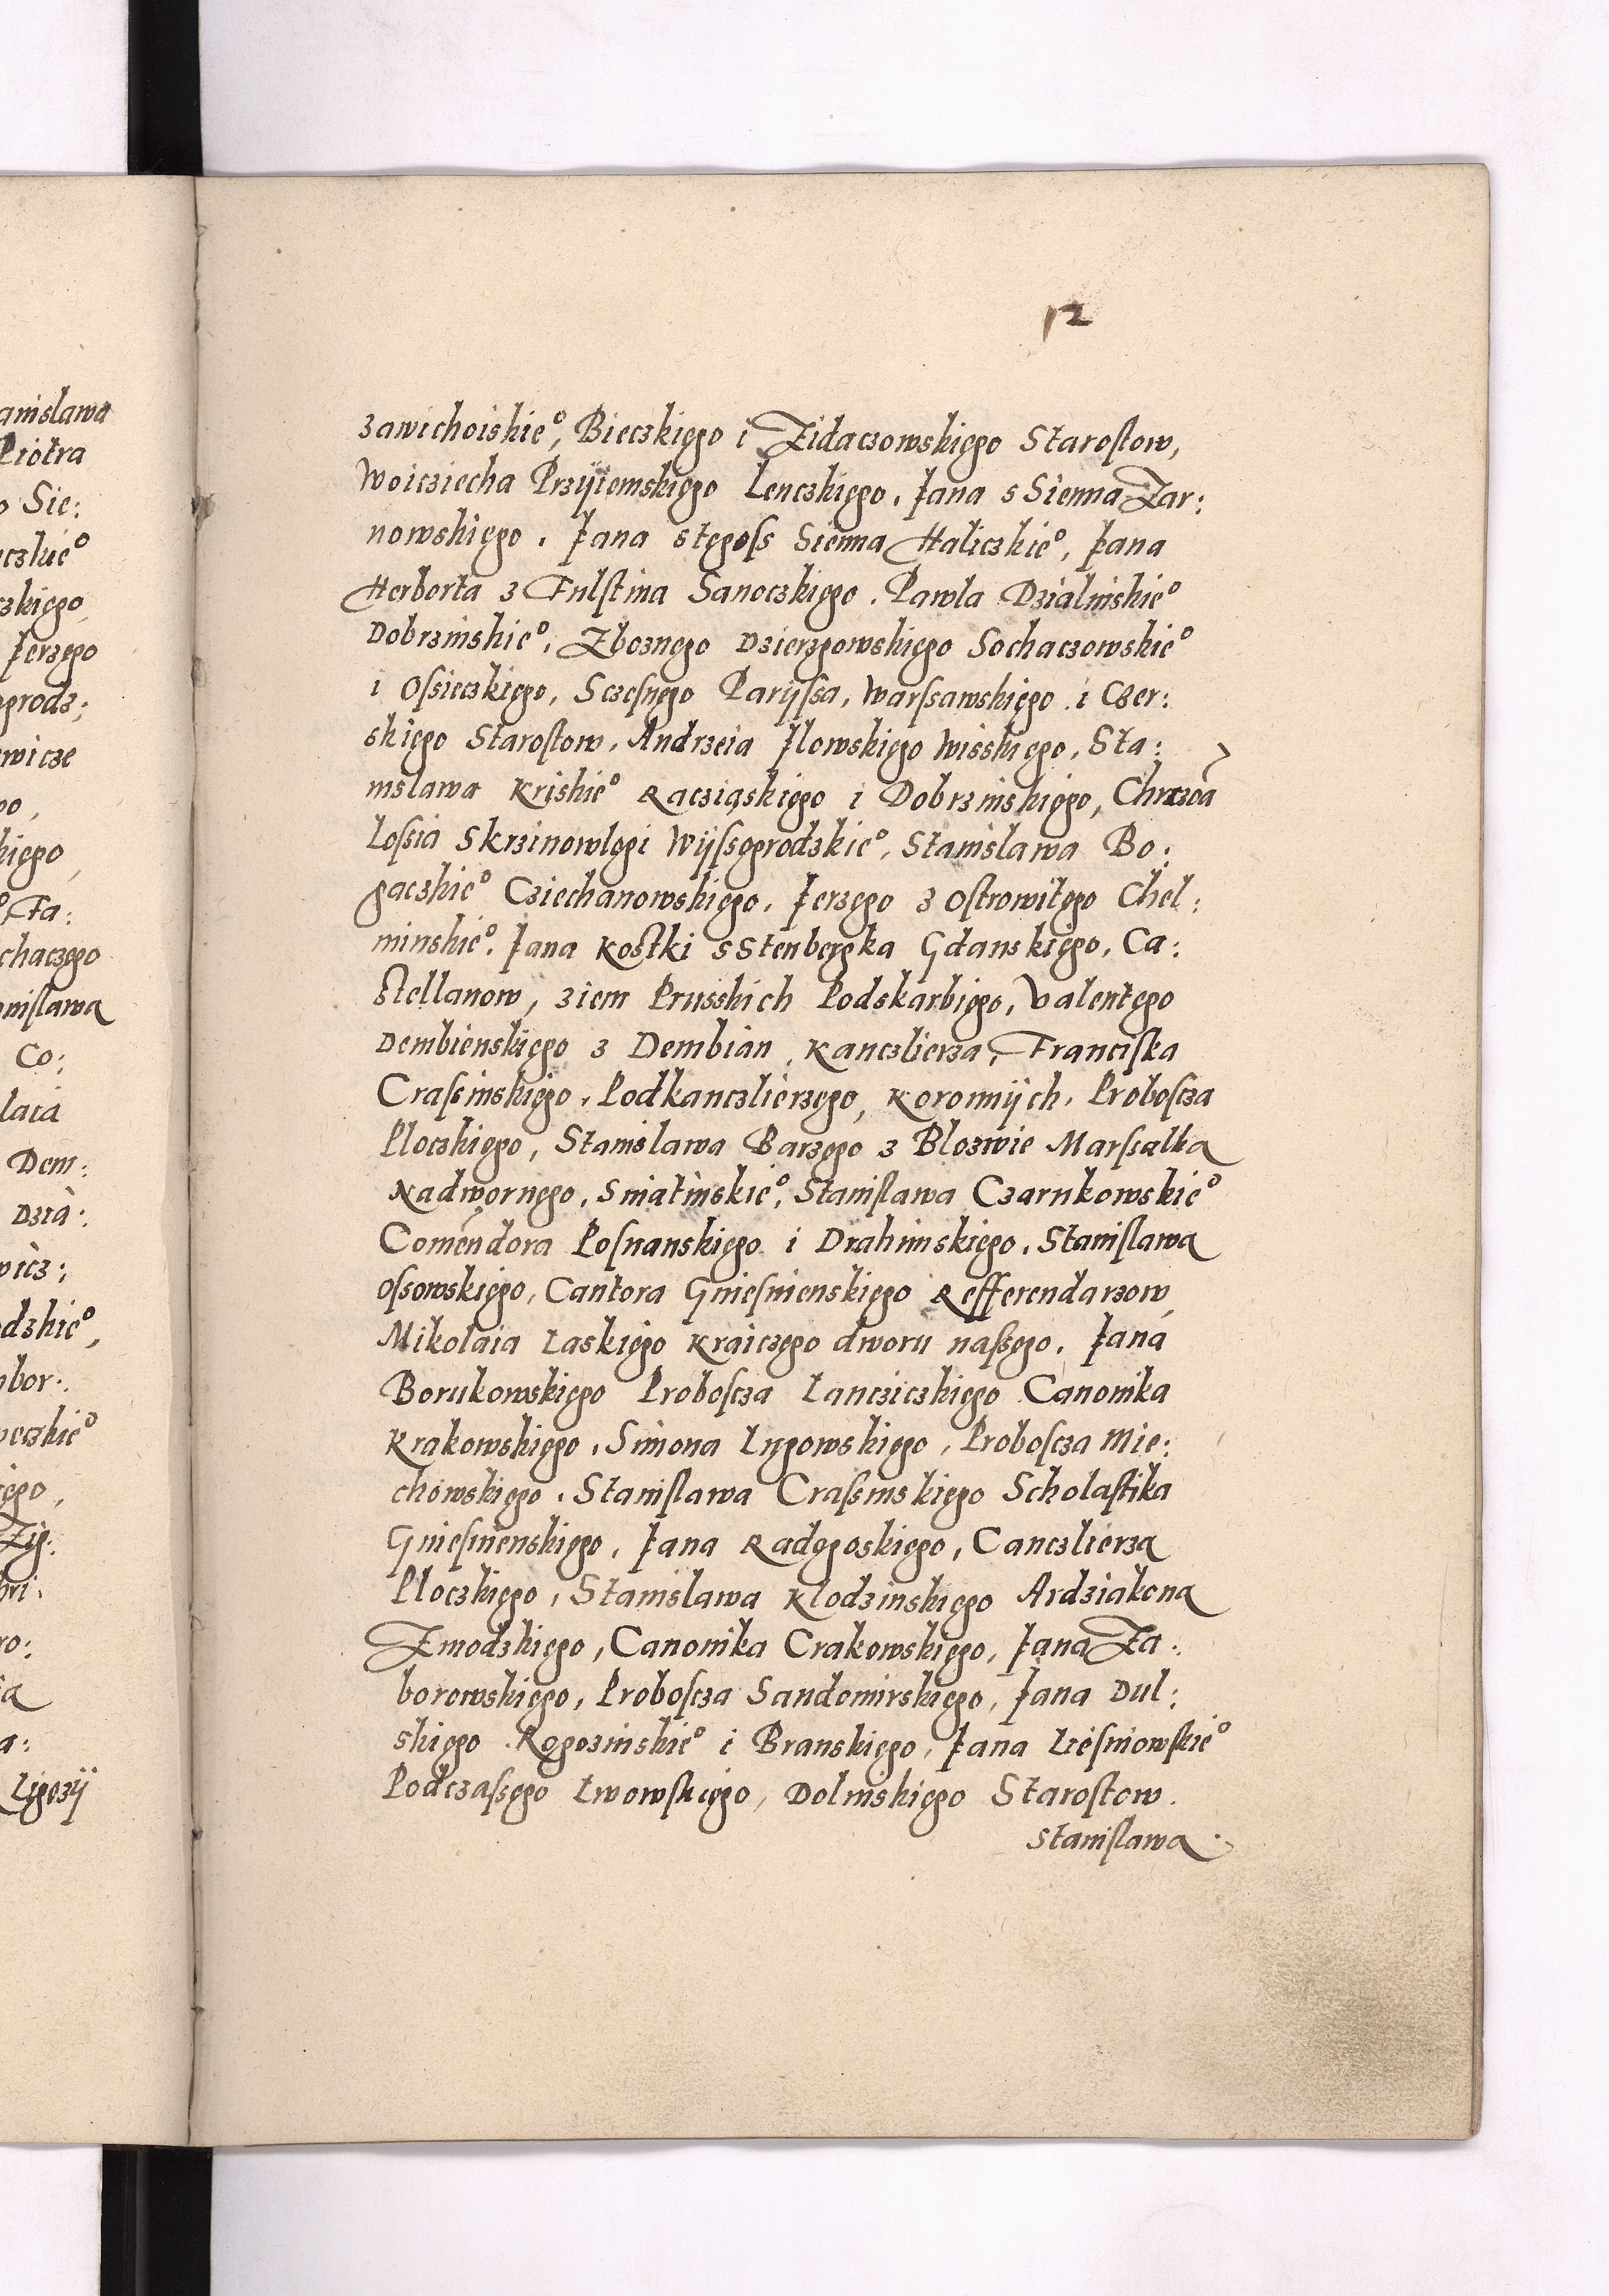 12
zawichoiskie°, Bieczkiego i Zidaczowskiego Starostow,
Woicziecha Przyiemskiego Lenczkiego, Jana s Sienna Zar:
nowskiego, Jana stegoss Sienna Haliczkie°, Jana
Herborta z Fulstina Sanoczkiego, Pawla Dzialinskie°
Dobrzinskie°, Zboznego Dzierzgowskiego Sochaczowskie°
i Ossieczkiego, Sczesnego Parÿssa, Warssawskiego i Czer:
skiego Starostow, Andrzeia Jlowskiego Wisskiego, Sta:
nislawa Kriskie° Racziąskiego i Dobrzinskiego,
Lossia Skrzinowlogi Wÿssogrodzkie°, Stanislawa Bo:
gaczkie° Cziechanowskiego, Jerzego z Ostrowitego Chel:
minskie°, Jana Kostki s Stenbergka Gdanskiego, Ca:
stellanow, ziem Prusskich Podskarbiego, Valentego
Dembienskiego z Dembian Kanczlierza, Franciska
Crassinskiego, Podkanczlierzego, Koronnÿch, Proboscza
Ploczkiego, Stanislawa Barzego z Blozwie Marssalka
Nadwornego, Sniatinskie°, Stanislawa Czarnkowskie°
Comendora Posnanskiego i Drahimskiego, Stanislawa
Ossowskiego, Cantora Gniesnienskiego Refferendarzow,
Mikolaia Laskiego Kraiczego dworu naszego, Jana
Borukowskiego Proboscza Lancziczkiego Canonika
Krakowskiego, Simona Lugowskiego, Proboscza Mie:
chowskiego, Stanislawa Crassinskiego Scholastika
Gniesnienskiego, Jana Radogoskiego, Canczlierza
Ploczkiego, Stanislawa Klodzinskiego Ardziakona
Zmodzkiego, Canonika Crakowskiego, Jana Za:
borowskiego, Proboscza Sandomirskiego, Jana Dul:
skiego Rogozinskie° i Branskiego, Jana Liesniowskie°
Podczassego Lwowskiego, Dolinskiego Starostow.
Stanislawa